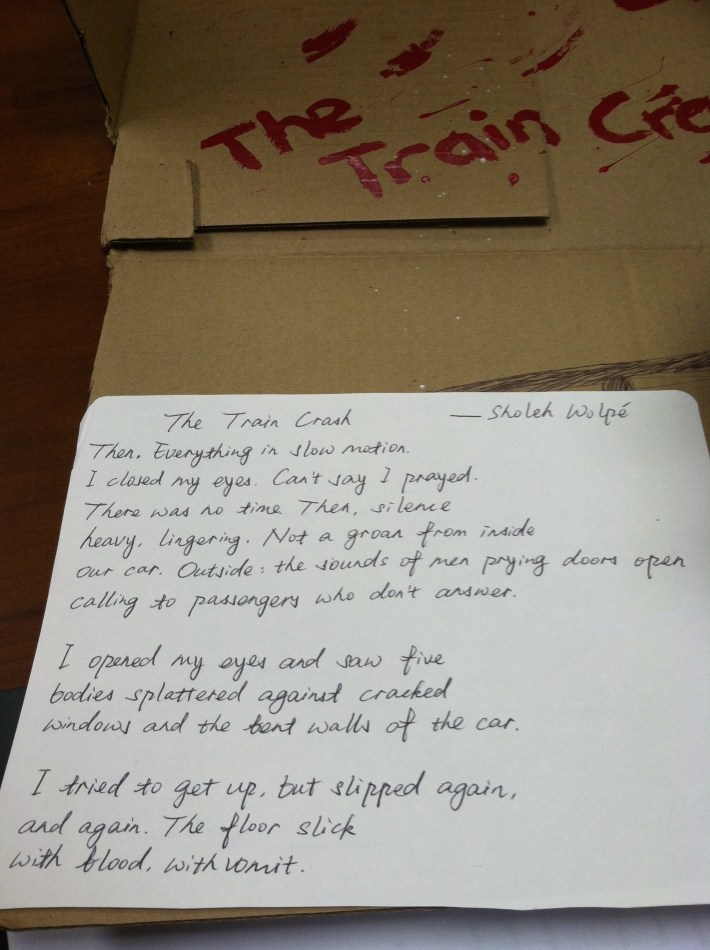 The
Train Cra
The Train Crash — Sholeh Wolpé
Then. Everything in slow motion.
I closed my eyes. Can't say I prayed.
There was no time. Then, silence
heavy, lingering. Not a groan from inside
our car. Outside: the sounds of men prying doors open
calling to passengers who don't answer.
I opened my eyes and saw five
bodies splattered against cracked
windows and the bent walls of the car.
I tried to get up, but slipped again,
and again. The floor slick
with blood, with vomit.